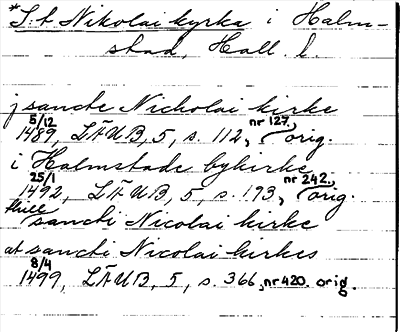 *S:t Nikolai kyrka i Halm-
stad, Hall. l.
j sancte Nicholai kirke
5/12 1489, LÄUB, 5, s. 112, nr 127, orig.
i Halmstade bykirke
25/1 1492, LÄUB, 5, s. 193, nr 242, orig.
till sancti Nicolai kirke
at sancti Nicolai kirkes
8/4 1499, LÄUB, 5, s. 366, nr 420. orig.